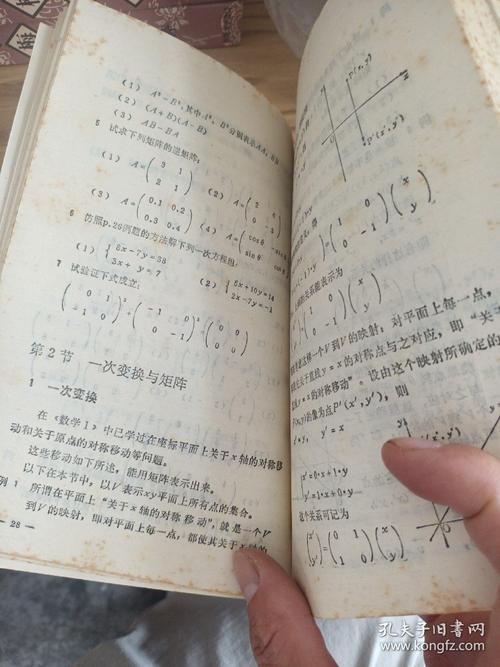 (1) A²-B²,其中A²、B²分别表示AA,BB
(2) (A+B)(A-B)
(3) AB-BA
5 试求下列矩阵的逆矩阵:
(1) A=(3 1
2 1)
(2) A=(2
0 -3)
(3) A=(0.1 0.2
0.3 0.4)
(4) A=(cosθ
sinθ
6 仿照p.26例题的方法解下列一次方程组:
(1) {6x-7y=38
3x+ y=7
(2) {5x+10y=14
2x-7y=-1
7 试验证下式成立:
(0 1
-1 -1)²+(-1 0
0 -1)²=(0 0
0 0)
第2节 一次变换与矩阵
1 一次变换
在《数学1》中已学过在座标平面上关于x轴的对称移
动和关于原点的对称移动等问题。
这些移动如下所述,能用矩阵表示出来。
以下在本节中,以V表示xy平面上所有点的集合。
例1 所谓在平面上“关于x轴的对称移动”,就是一个V
到V的映射,即对平面上每一点,都使其关于x轴的
28 —
P(x,y)
P'(x',y')
=(1 0
0 -1)(x
y)
系能表示为
(1 0
0 -1)(x
y)
这样一个V到V的映射:对平面上每一点,
关于直线y=x的对称点与之对应,即“关于
y=x的对称移动”。设由这个映射所确定的
P(x,y)的象为点P'(x',y'),则
x'=y, y'=x
{x'=0·x+1·y
y'=1·x+0·y
这个关系可记为
(x'
y')=(0 1
1 0)(x
y)
孔夫子旧书网
kongfz.com